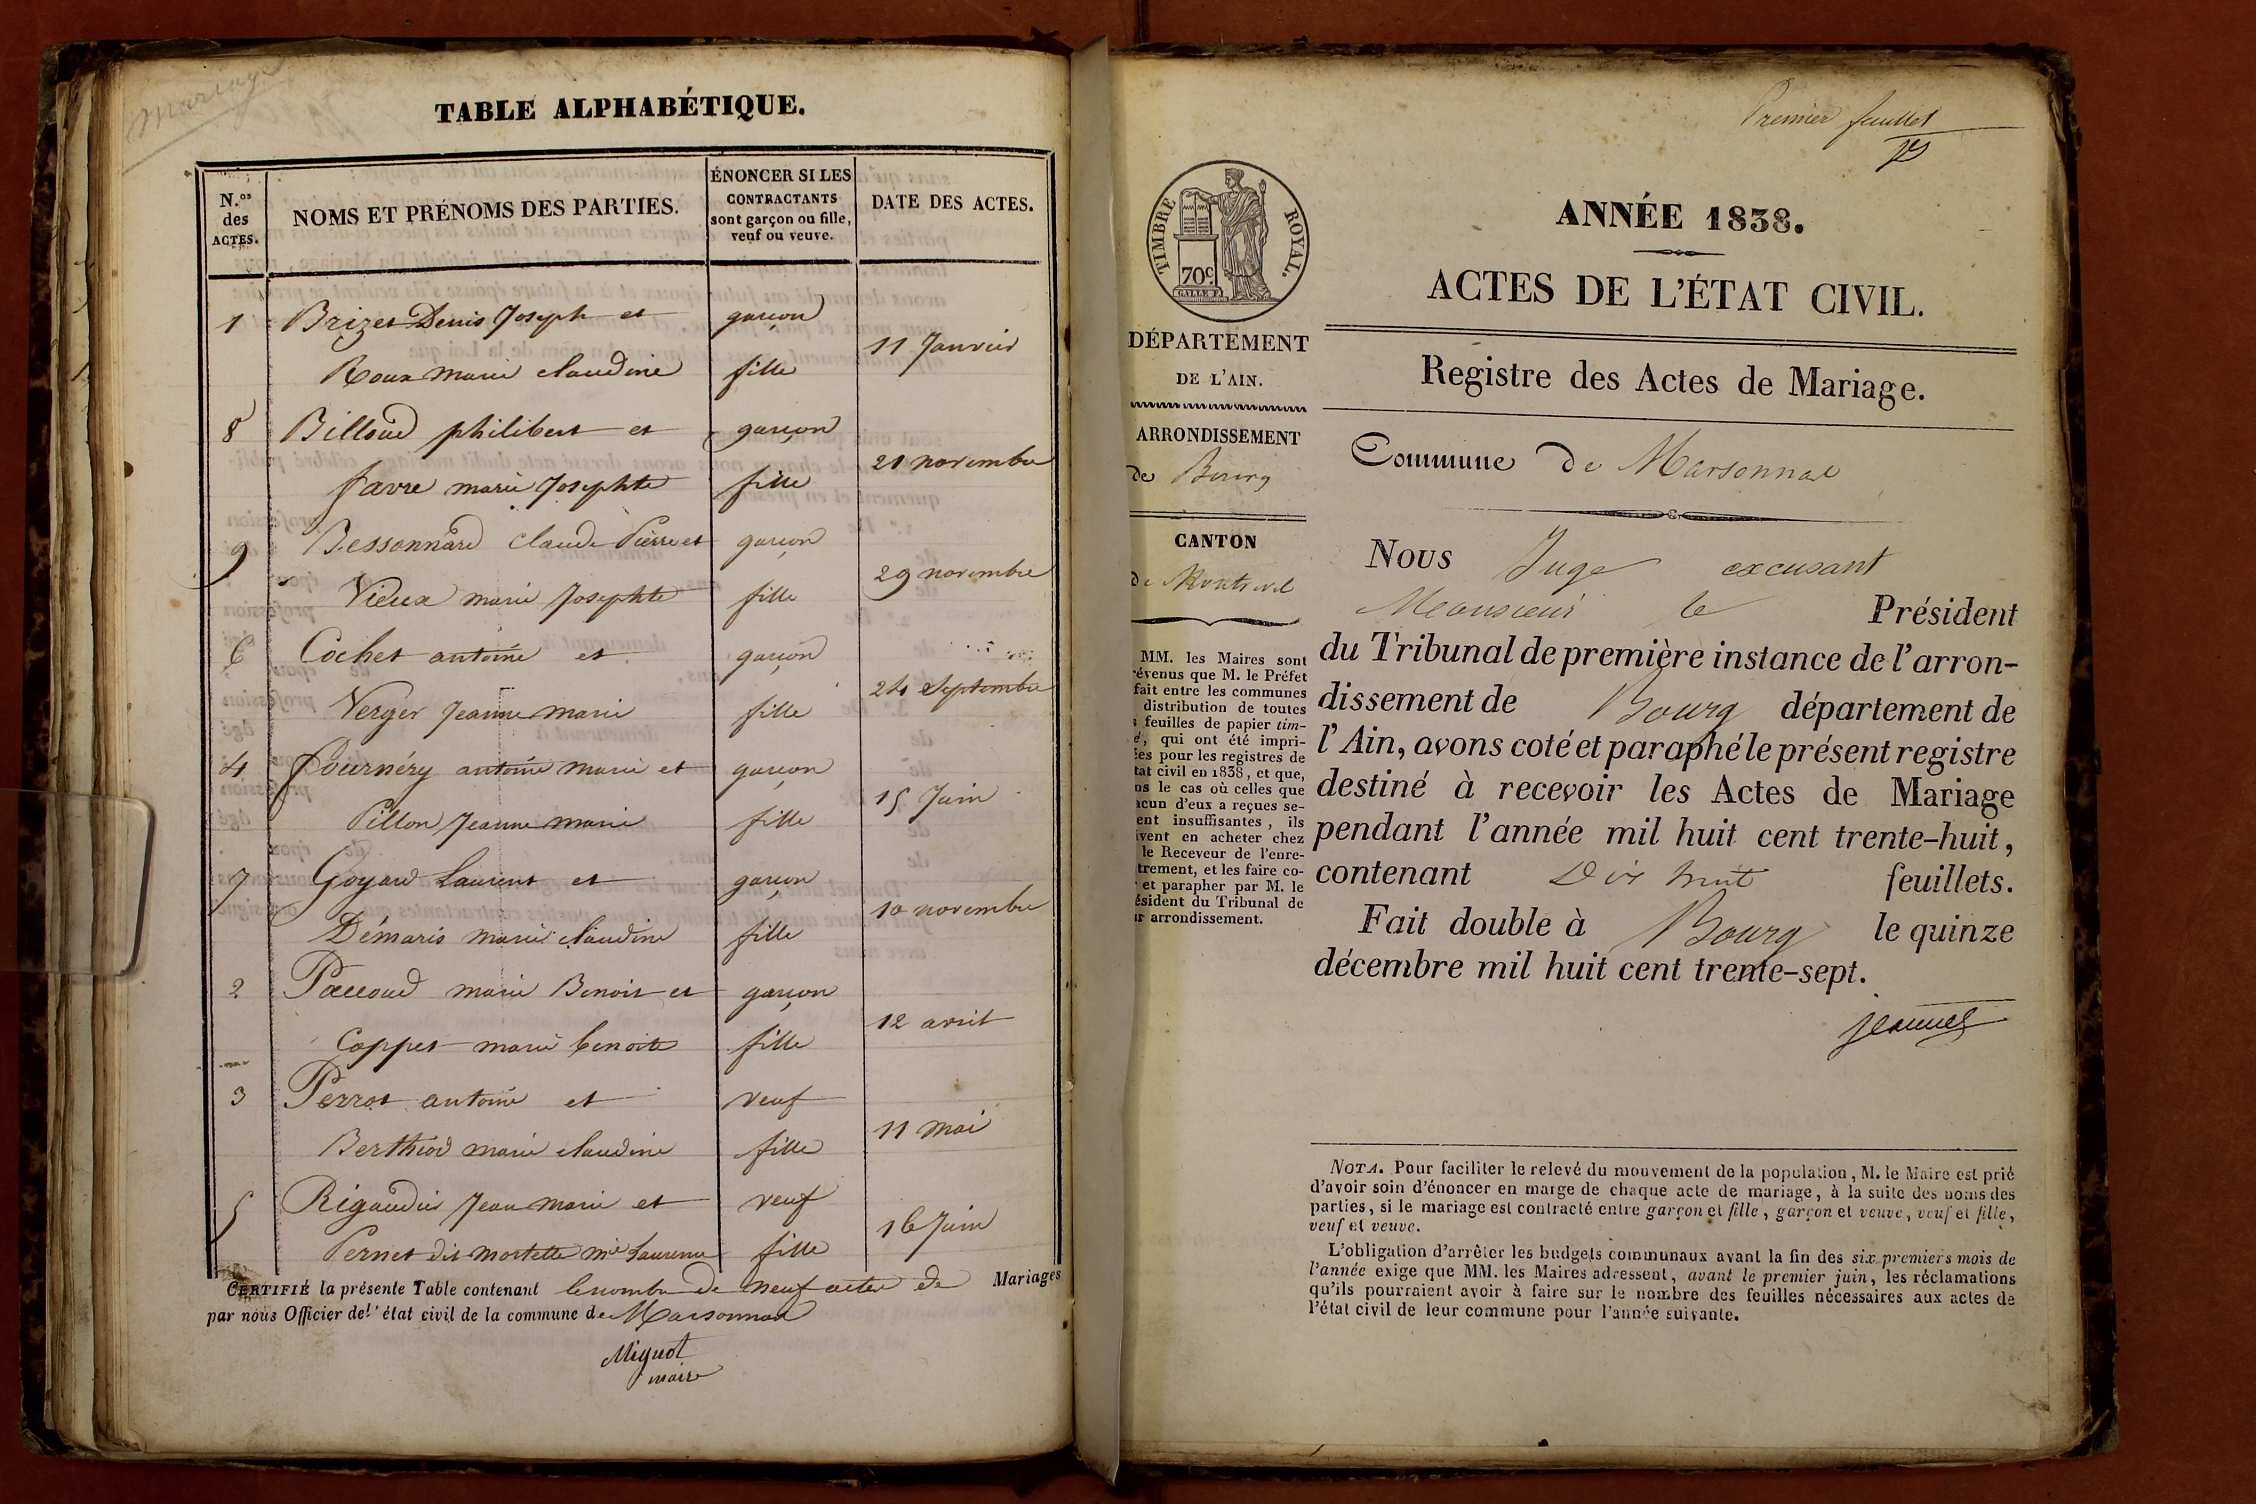 Mariage
TABLE ALPHABÉTIQUE.
N.os des ACTES.
NOMS ET PRÉNOMS DES PARTIES.
ÉNONCER SI LES
CONTRACTANTS
sont garçon ou fille,
veuf ou veuve.
DATE DES ACTES.
1 Brizet Denis Joseph et garçon
11 Janvier
Roux marie claudine fille
8 Billoud philibert et garçon
21 novembre
favre marie Josephte fille
9 Bessonnard claude Pierre et garçon
29 novembre
Vieux marie Josephte fille
6 Cochet antoine et garçon
24 Septembre
Verger Jeanne marie fille
4 Fournéry antoine marie et garçon
15 Juin
Pillon Jeanne marie fille
7 Goyard Laurent et garçon
10 novembre
Démaris marie claudine fille
2 Paccoud marie Benoit et garçon
12 avril
Coppet marie benoite fille
3 Perrot antoine et veuf
11 mai
Berthiod marie claudine fille
5 Rigaudier Jean marie et veuf
16 Juin
Pernet dit mortette mie Laurence fille
CERTIFIÉ la présente Table contenant le nombre de neuf actes de Mariages
par nous Officier de l'état civil de la commune de Marsonnas
Miguot
maire
Premier feuillet
TIMBRE ROYAL.
70c
ANNÉE 1838.
ACTES DE L'ÉTAT CIVIL.
Registre des Actes de Mariage.
Commune de Marsonnas
DÉPARTEMENT
DE L'AIN.
ARRONDISSEMENT
de Bourg
CANTON
de Montrevel
MM. les Maires sont
évenus que M. le Préfet
fait entre les communes
distribution de toutes
feuilles de papier tim-
é, qui ont été impri-
es pour les registres de
tat civil en 1838, et que,
ns le cas où celles que
acun d'eux a reçues se-
ent insuffisantes, ils
ivent en acheter chez
le Receveur de l'enre-
trement, et les faire co-
et parapher par M. le
ésident du Tribunal de
ur arrondissement.
NOUS Juge excusant
Monsieur le Président
du Tribunal de première instance de l'arron-
dissement de Bourg département de
l'Ain, avons coté et paraphé le présent registre
destiné à recevoir les Actes de Mariage
pendant l'année mil huit cent trente-huit,
contenant Dix huit feuillets.
Fait double à Bourg le quinze
décembre mil huit cent trente-sept.
Jeannet
NOTA. Pour faciliter le relevé du mouvement de la population, M. le Maire est prié
d'avoir soin d'énoncer en marge de chaque acte de mariage, à la suite des noms des
parties, si le mariage est contracté entre garçon et fille, garçon et veuve, veuf et fille,
veuf et veuve.
L'obligation d'arrêter les budgets communaux avant la fin des six premiers mois de
l'année exige que MM. les Maires adressent, avant le premier juin, les réclamations
qu'ils pourraient avoir à faire sur le nombre des feuilles nécessaires aux actes de
l'état civil de leur commune pour l'année suivante.